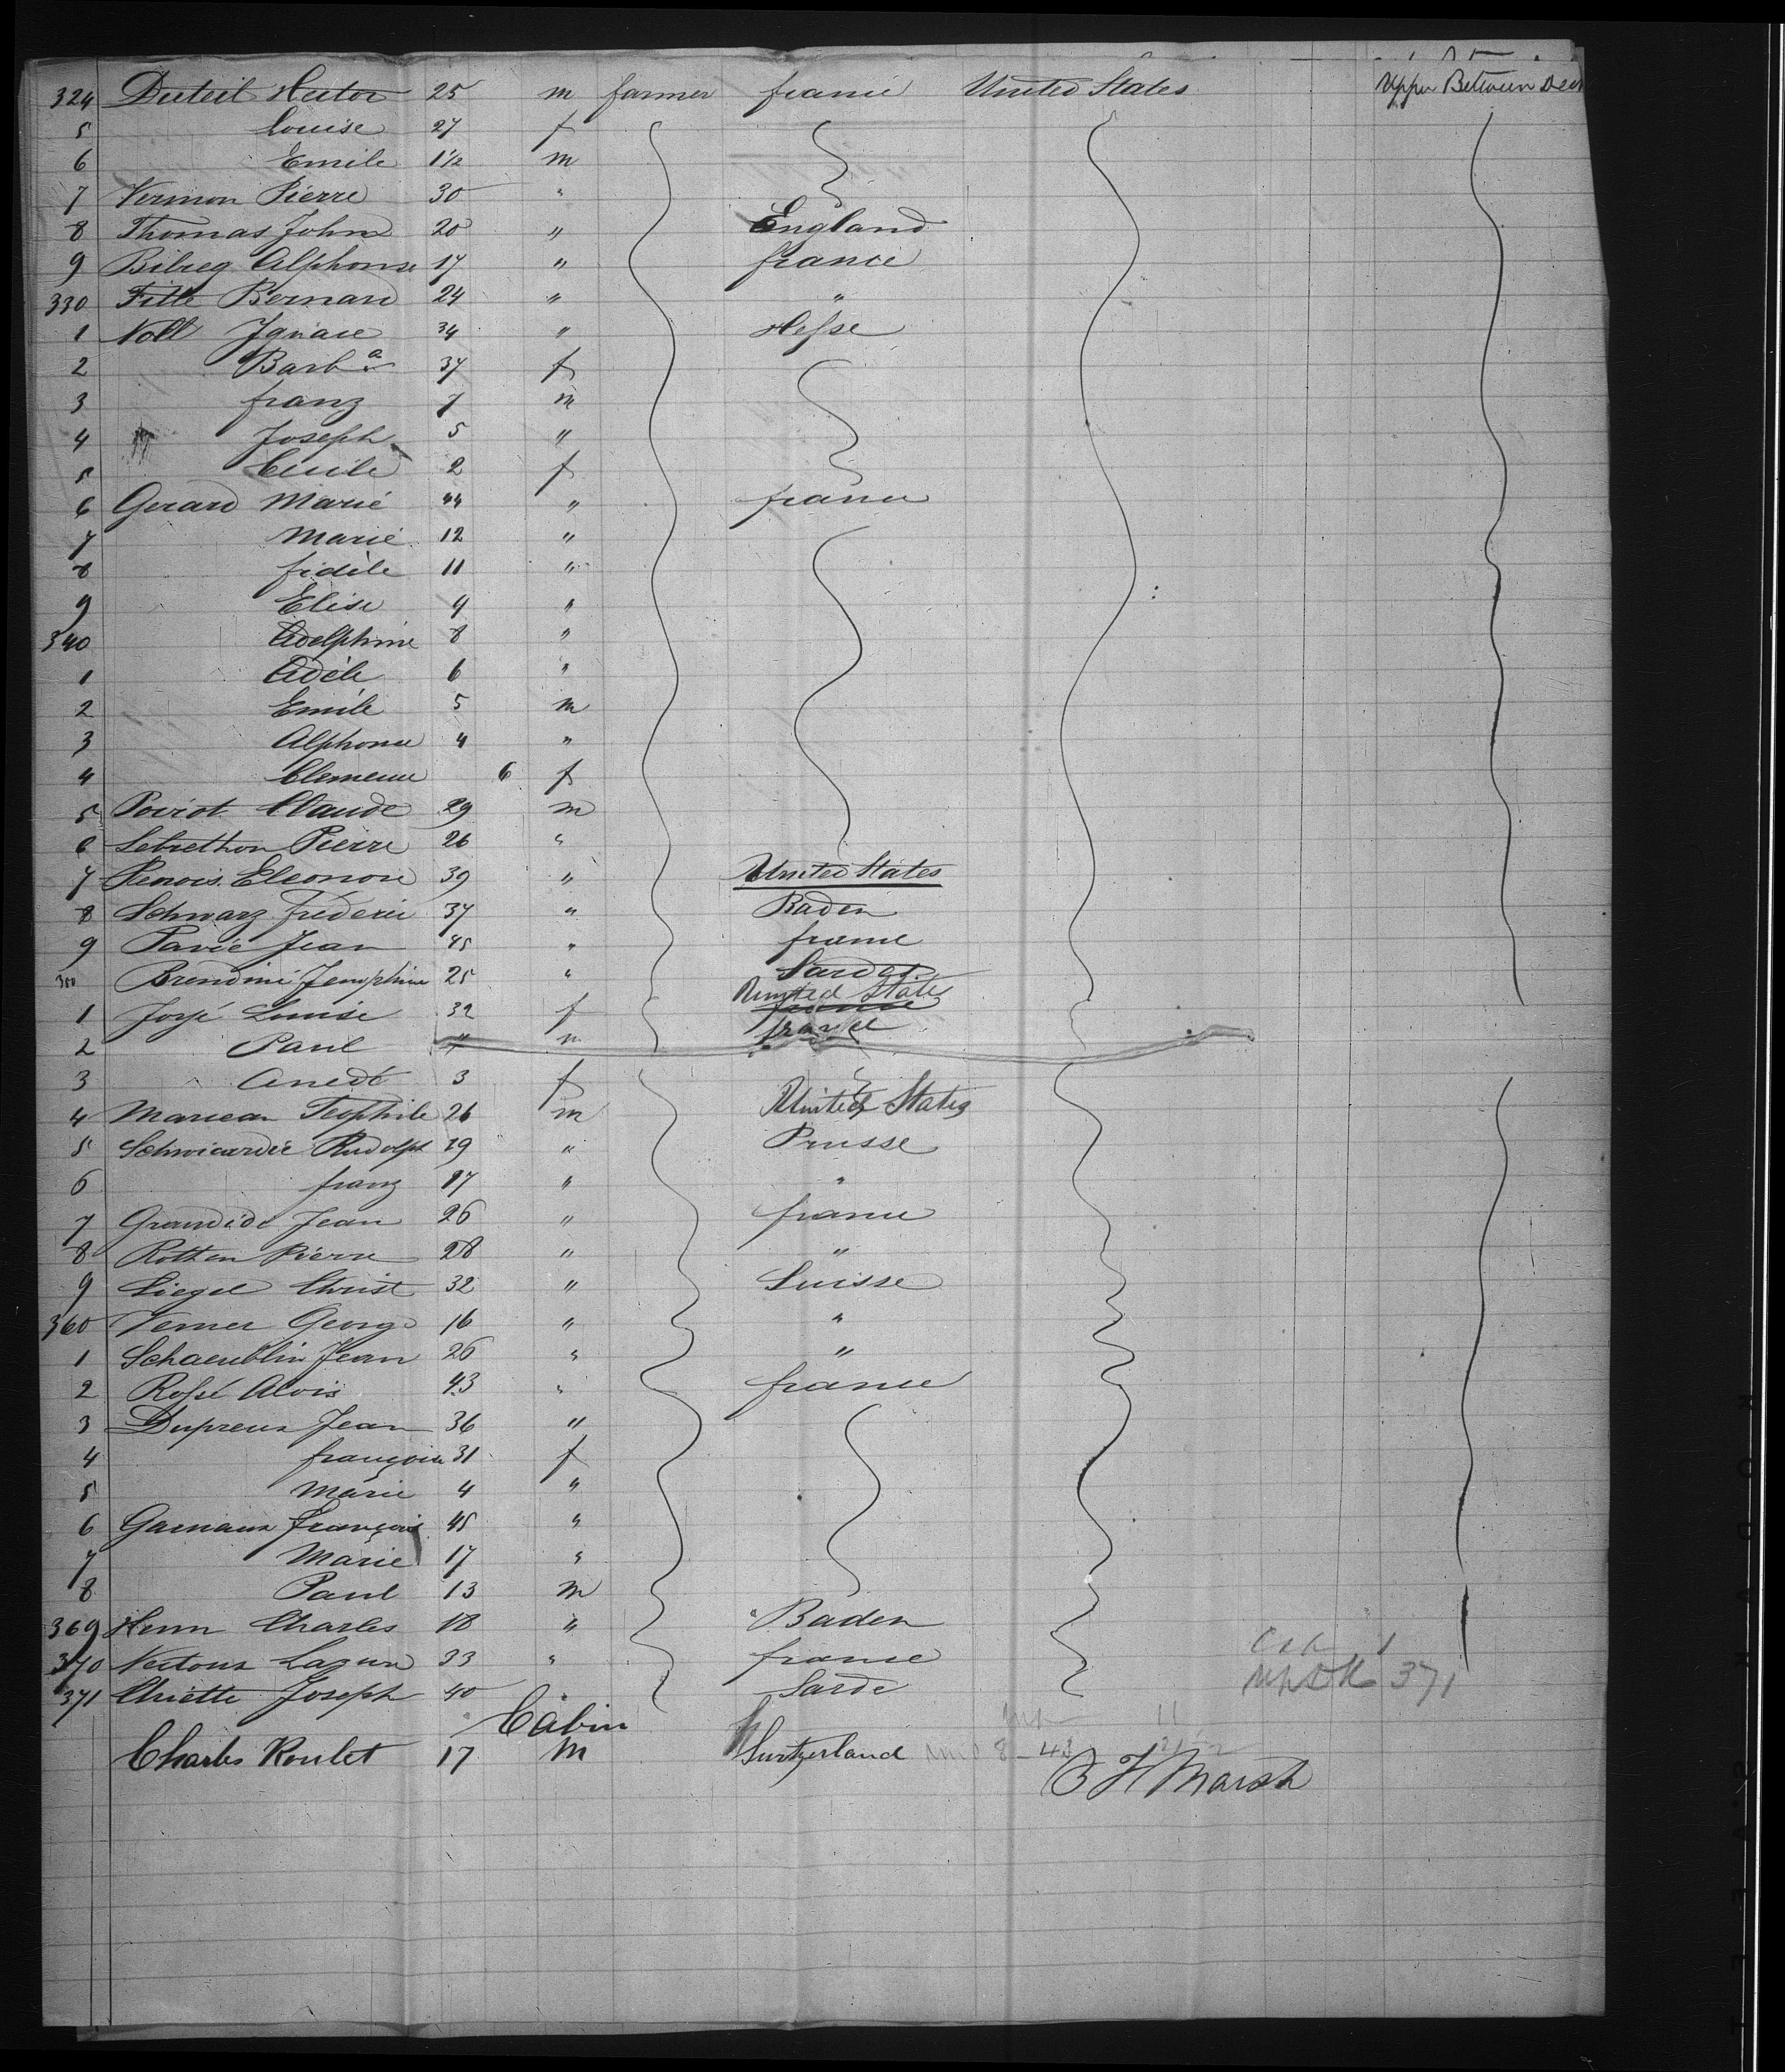 324 Duteil Hector 25 m farmer france United States Upper Between Deck
5 Louise 27 f
6 Emile 1½ m
7 Vermon Pierre 30 "
8 Thomas John 20 " England
9 Bibreg Alphonse 17 " france
330 Fitte Bernard 24 " "
1 Noll Ignace 34 " Hesse
2 Barbª 37 f
3 franz 7 m
4 Joseph 5 "
5 Cecile 2 f
6 Gerard Marie 44 " france
7 Marie 12 "
8 fidéle 11 "
9 Elise 9 "
340 Adelphine 8 "
1 Adéle 6 "
2 Emile 5 m
3 Alphonse 4 "
4 Clemence 6 f
5 Poirot Claude 29 m
6 Lebrethon Pierre 26 "
7 Renois Eleonore 39 " United States
8 Schwarz frederic 37 " Baden
9 Pavie Jean 45 " france
350 Brendiné Josephine 25 " Sardes
1 Josjé Louise 32 f United States
2 Paul " m france
3 Anedt 3 f
4 Marceau Teophile 26 m United States
5 Schwicardie Rudolph 29 " Prusse
6 franz 27 " "
7 Grandidi Jean 26 " france
8 Rotten Pierre 28 " "
9 Siegel Christ 32 " Suisse
360 Verner George 16 " "
1 Schaeublin Jean 26 " "
2 Rossé Alois 43 " france
3 Dupreux Jean 36 "
4 françoise 31 f
5 Marie 4 "
6 Garnaux françoise 45 "
7 Marie 17 "
8 Paul 13 m
369 Henn Charles 18 " Baden
370 Vertoux Lazare 33 " france
371 Chiette Joseph 40 " Sarde
Cab 1
Up DK 371
Cabin
Charles Roulet 17 m Switzerland
11
8 - 43
B H Marsh